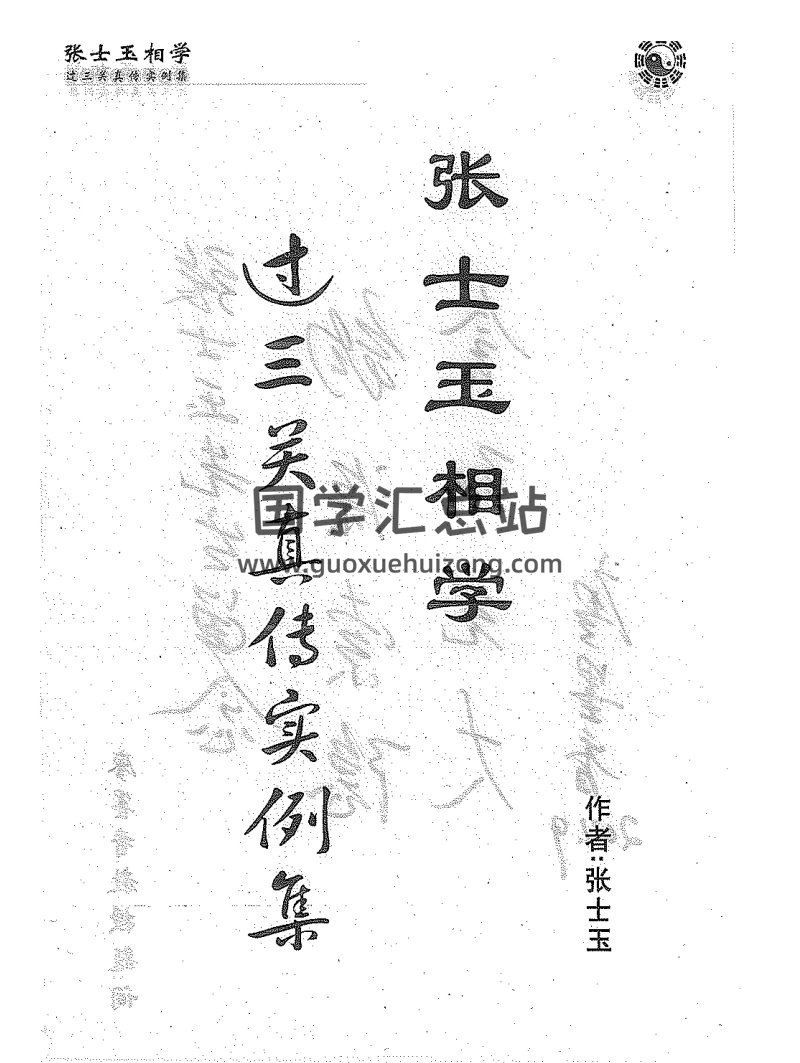 张士玉相学
过三关真传实例集
张士玉相学
过三关真传实例集
国学汇总站
www.guoxuehuizong.com
作者:张士玉